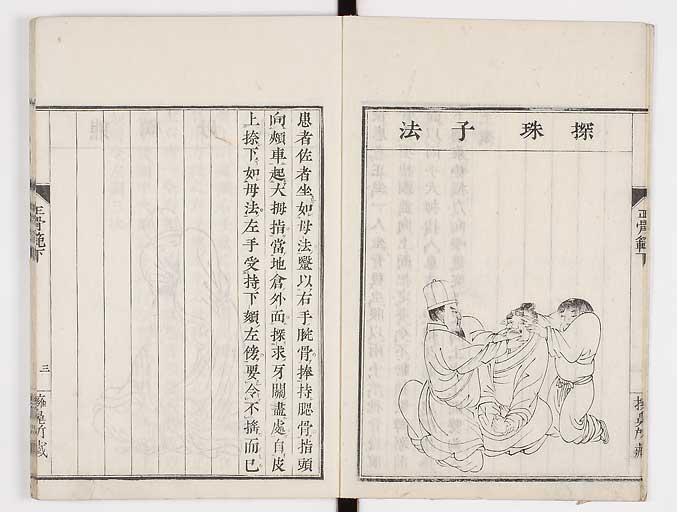 探珠子法
正骨範下
患者佐者坐如母法毉以右手腕骨捧持腮骨指頭
向頰車起大拇指當地倉外面探求牙關盡處自皮
上捺下如母法左手受持下頦左傍要令不搖而已
正骨範下
三